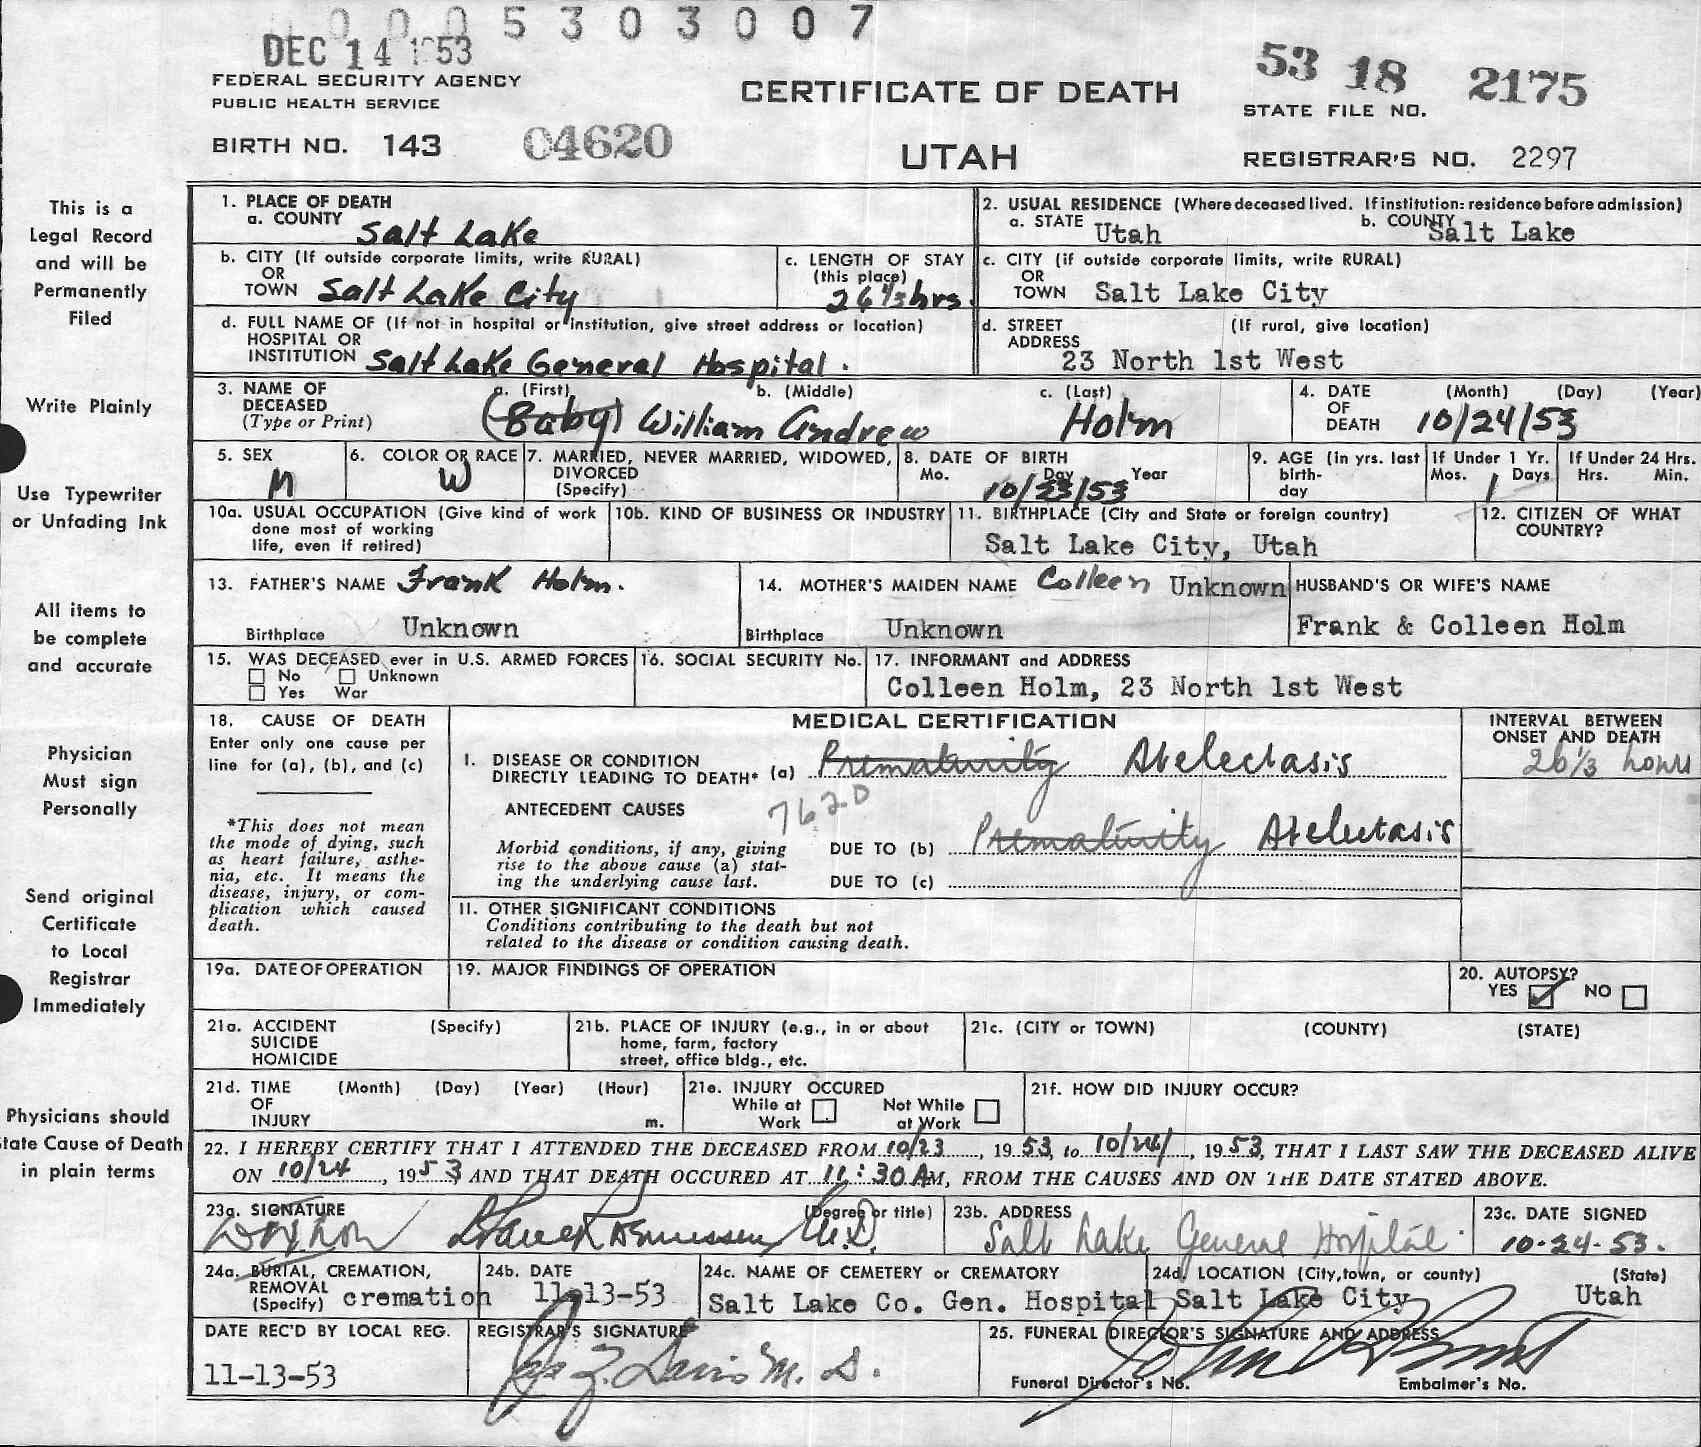 0005303007
DEC 14 1953
FEDERAL SECURITY AGENCY
PUBLIC HEALTH SERVICE
BIRTH NO. 143 04620
CERTIFICATE OF DEATH
UTAH
53 18 2175
STATE FILE NO.
REGISTRAR'S NO. 2297
This is a
Legal Record
and will be
Permanently
Filed
Write Plainly
Use Typewriter
or Unfading Ink
All items to
be complete
and accurate
Physician
Must sign
Personally
Send original
Certificate
to Local
Registrar
Immediately
Physicians should
tate Cause of Death
in plain terms
1. PLACE OF DEATH
a. COUNTY Salt Lake
2. USUAL RESIDENCE (Where deceased lived. If institution: residence before admission)
a. STATE Utah b. COUNTY Salt Lake
b. CITY (If outside corporate limits, write RURAL)
OR
TOWN Salt Lake City
c. LENGTH OF STAY
(this place)
26 1/3 hrs.
c. CITY (if outside corporate limits, write RURAL)
OR
TOWN Salt Lake City
d. FULL NAME OF (If not in hospital or institution, give street address or location)
HOSPITAL OR
INSTITUTION Salt Lake General Hospital.
d. STREET (If rural, give location)
ADDRESS
23 North 1st West
3. NAME OF
DECEASED
(Type or Print)
a. (First) b. (Middle) c. (Last)
(Baby) William Andrew Holm
4. DATE (Month) (Day) (Year)
OF
DEATH 10/24/53
5. SEX
M
6. COLOR OR RACE
W
7. MARRIED, NEVER MARRIED, WIDOWED,
DIVORCED
(Specify)
8. DATE OF BIRTH
Mo. Day Year
10/23/53
9. AGE (in yrs. last
birth-
day
If Under 1 Yr.
Mos. Days
1
If Under 24 Hrs.
Hrs. Min.
10a. USUAL OCCUPATION (Give kind of work
done most of working
life, even if retired)
10b. KIND OF BUSINESS OR INDUSTRY
11. BIRTHPLACE (City and State or foreign country)
Salt Lake City, Utah
12. CITIZEN OF WHAT
COUNTRY?
13. FATHER'S NAME Frank Holm.
Birthplace Unknown
14. MOTHER'S MAIDEN NAME Colleen Unknown
Birthplace Unknown
HUSBAND'S OR WIFE'S NAME
Frank & Colleen Holm
15. WAS DECEASED ever in U.S. ARMED FORCES
No Unknown
Yes War
16. SOCIAL SECURITY No.
17. INFORMANT and ADDRESS
Colleen Holm, 23 North 1st West
18. CAUSE OF DEATH
Enter only one cause per
line for (a), (b), and (c)
*This does not mean
the mode of dying, such
as heart failure, asthe-
nia, etc. It means the
disease, injury, or com-
plication which caused
death.
MEDICAL CERTIFICATION
I. DISEASE OR CONDITION
DIRECTLY LEADING TO DEATH* (a) Prematurity Atelectasis
ANTECEDENT CAUSES
7620
Morbid conditions, if any, giving
rise to the above cause (a) stat-
ing the underlying cause last.
DUE TO (b) Prematurity Atelectasis
DUE TO (c)
II. OTHER SIGNIFICANT CONDITIONS
Conditions contributing to the death but not
related to the disease or condition causing death.
INTERVAL BETWEEN
ONSET AND DEATH
26 1/3 hours
19a. DATE OF OPERATION
19. MAJOR FINDINGS OF OPERATION
20. AUTOPSY?
YES NO
21a. ACCIDENT (Specify)
SUICIDE
HOMICIDE
21b. PLACE OF INJURY (e.g., in or about
home, farm, factory
street, office bldg., etc.
21c. (CITY or TOWN) (COUNTY) (STATE)
21d. TIME (Month) (Day) (Year) (Hour)
OF
INJURY m.
21e. INJURY OCCURED
While at Not While
Work at Work
21f. HOW DID INJURY OCCUR?
22. I HEREBY CERTIFY THAT I ATTENDED THE DECEASED FROM 10/23, 1953, to 10/24/, 1953, THAT I LAST SAW THE DECEASED ALIVE
ON 10/24, 1953 AND THAT DEATH OCCURED AT 11:30 AM, FROM THE CAUSES AND ON THE DATE STATED ABOVE.
23a. SIGNATURE (Degree or title)
Rasmussen M.D.
23b. ADDRESS
Salt Lake General Hospital.
23c. DATE SIGNED
10-24-53.
24a. BURIAL, CREMATION,
REMOVAL
(Specify) cremation
24b. DATE
11-13-53
24c. NAME OF CEMETERY or CREMATORY
Salt Lake Co. Gen. Hospital
24d. LOCATION (City, town, or county) (State)
Salt Lake City Utah
DATE REC'D BY LOCAL REG.
11-13-53
REGISTRAR'S SIGNATURE
Z. Davis M. D.
25. FUNERAL DIRECTOR'S SIGNATURE AND ADDRESS
John
Funeral Director's No. Embalmer's No.